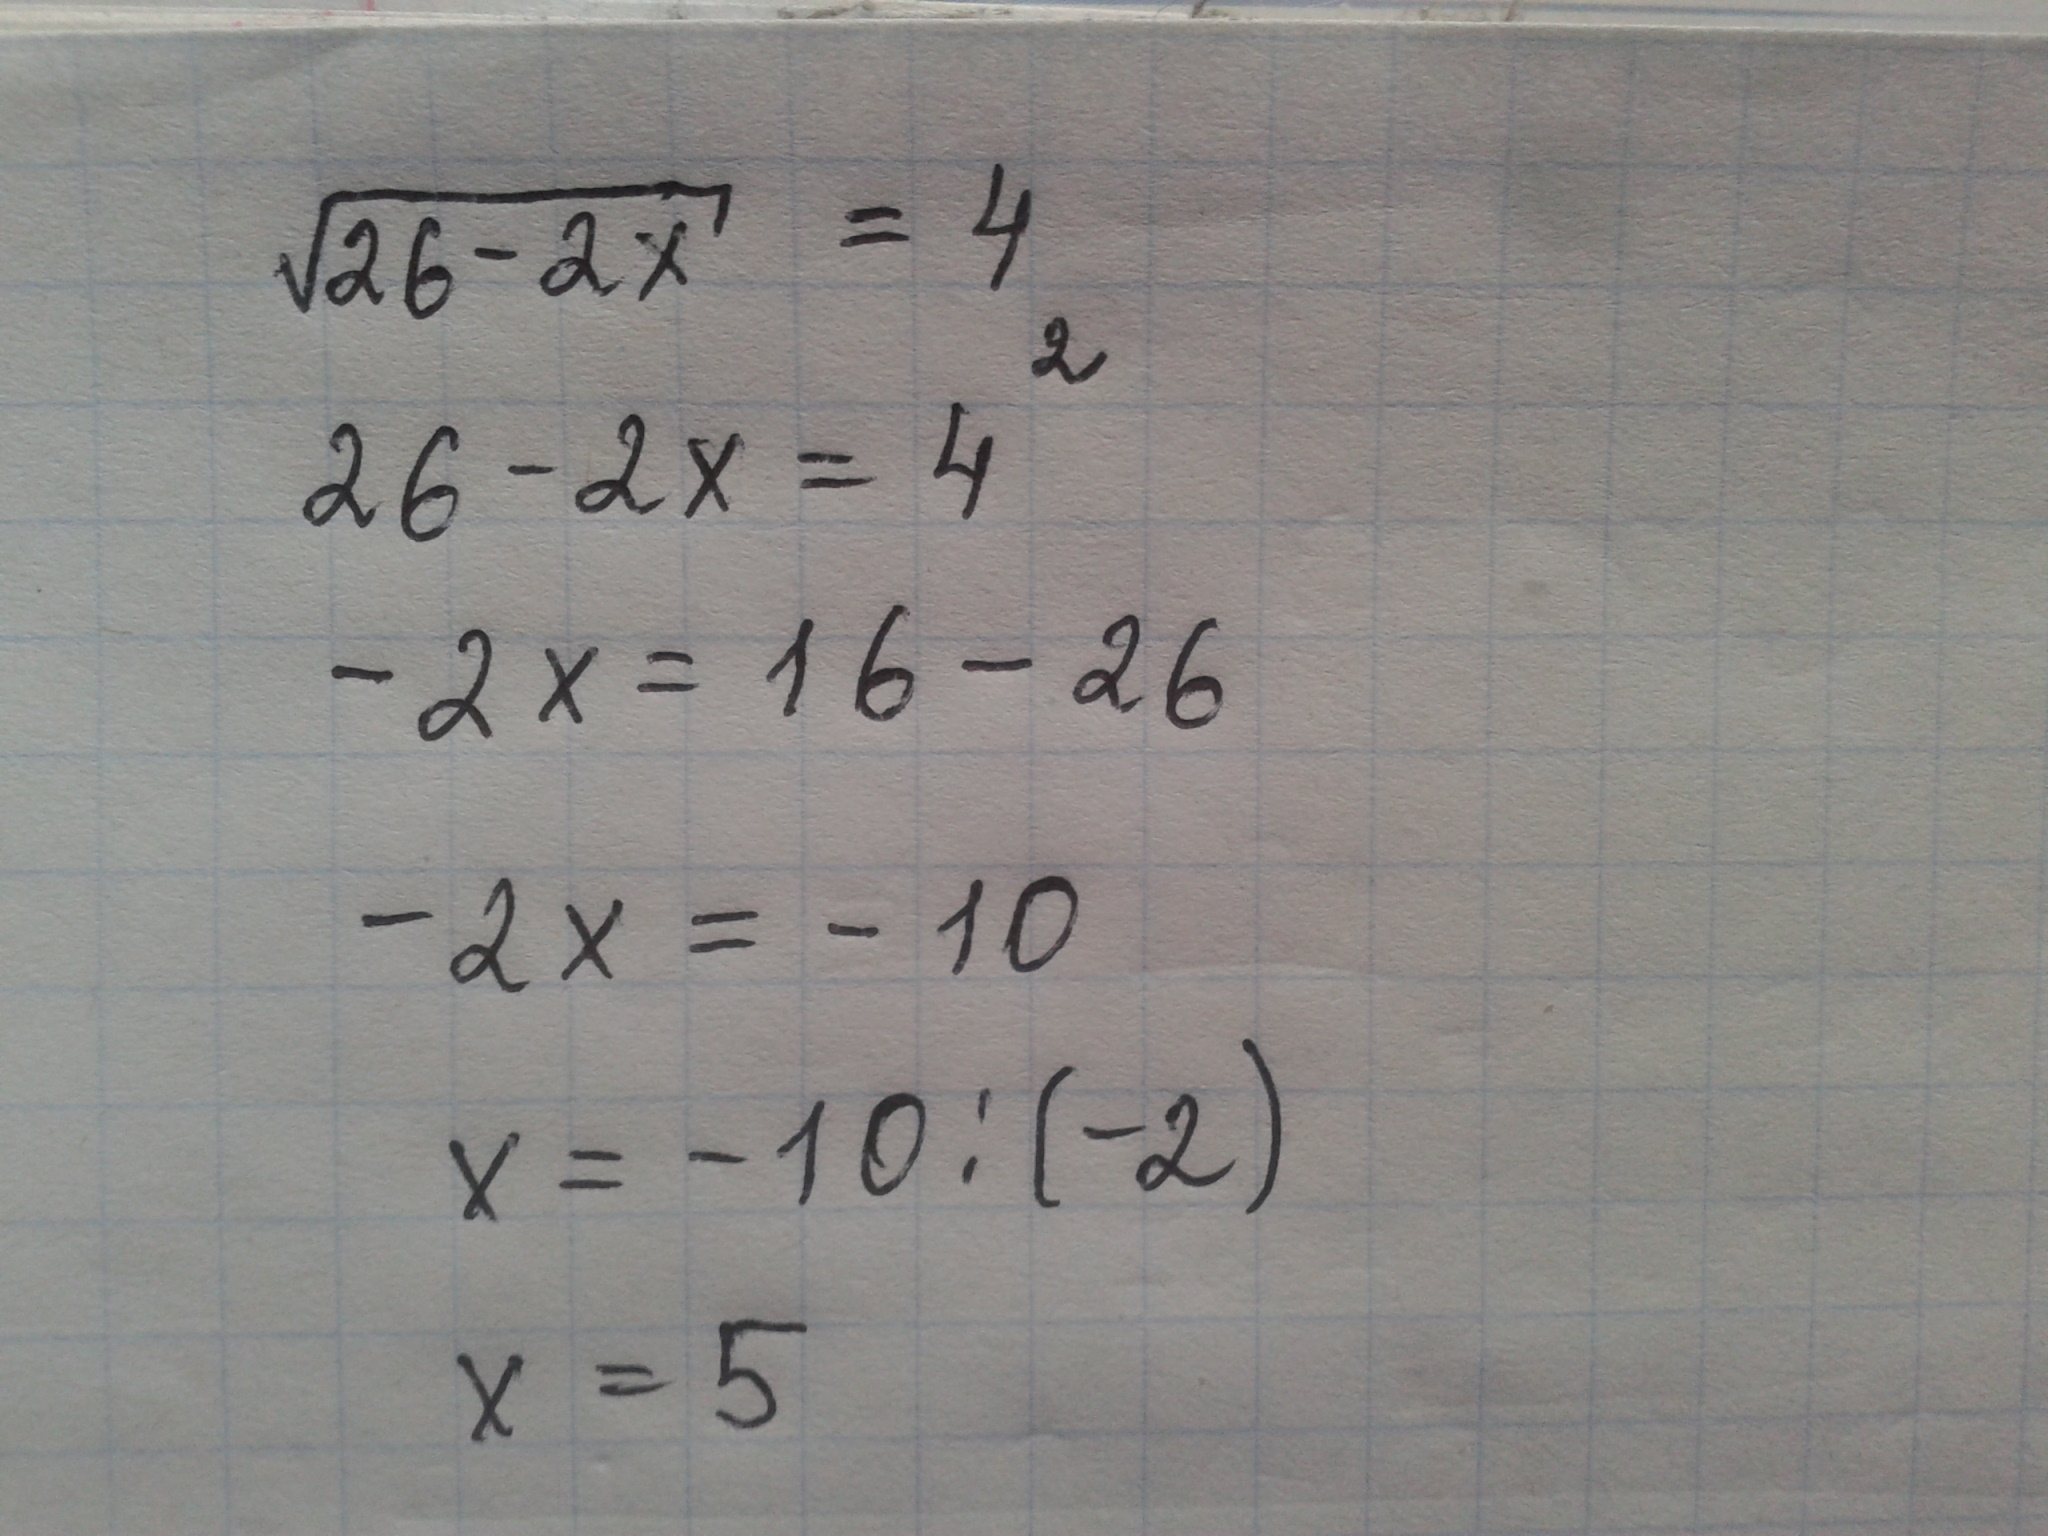 √26-2x = 4
26-2x = 4²
-2x = 16-26
-2x = -10
x = -10:(-2)
x = 5